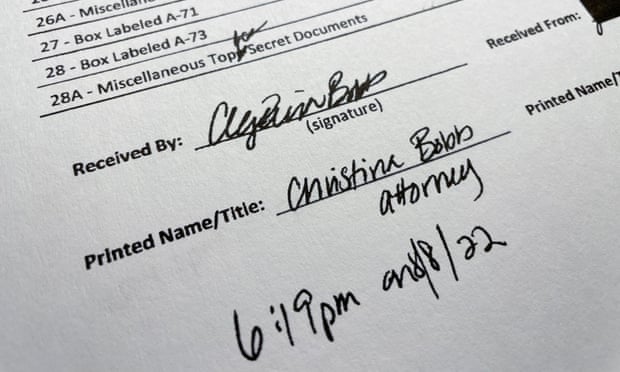 26A - Miscellan
27 - Box Labeled A-71
28 - Box Labeled A-73
28A - Miscellaneous Top Secret Documents
Received By:
(signature)
Received From:
Printed Name/Title: Christina Bobb
attorney
Printed Name/T
6:19pm on 8/8/22